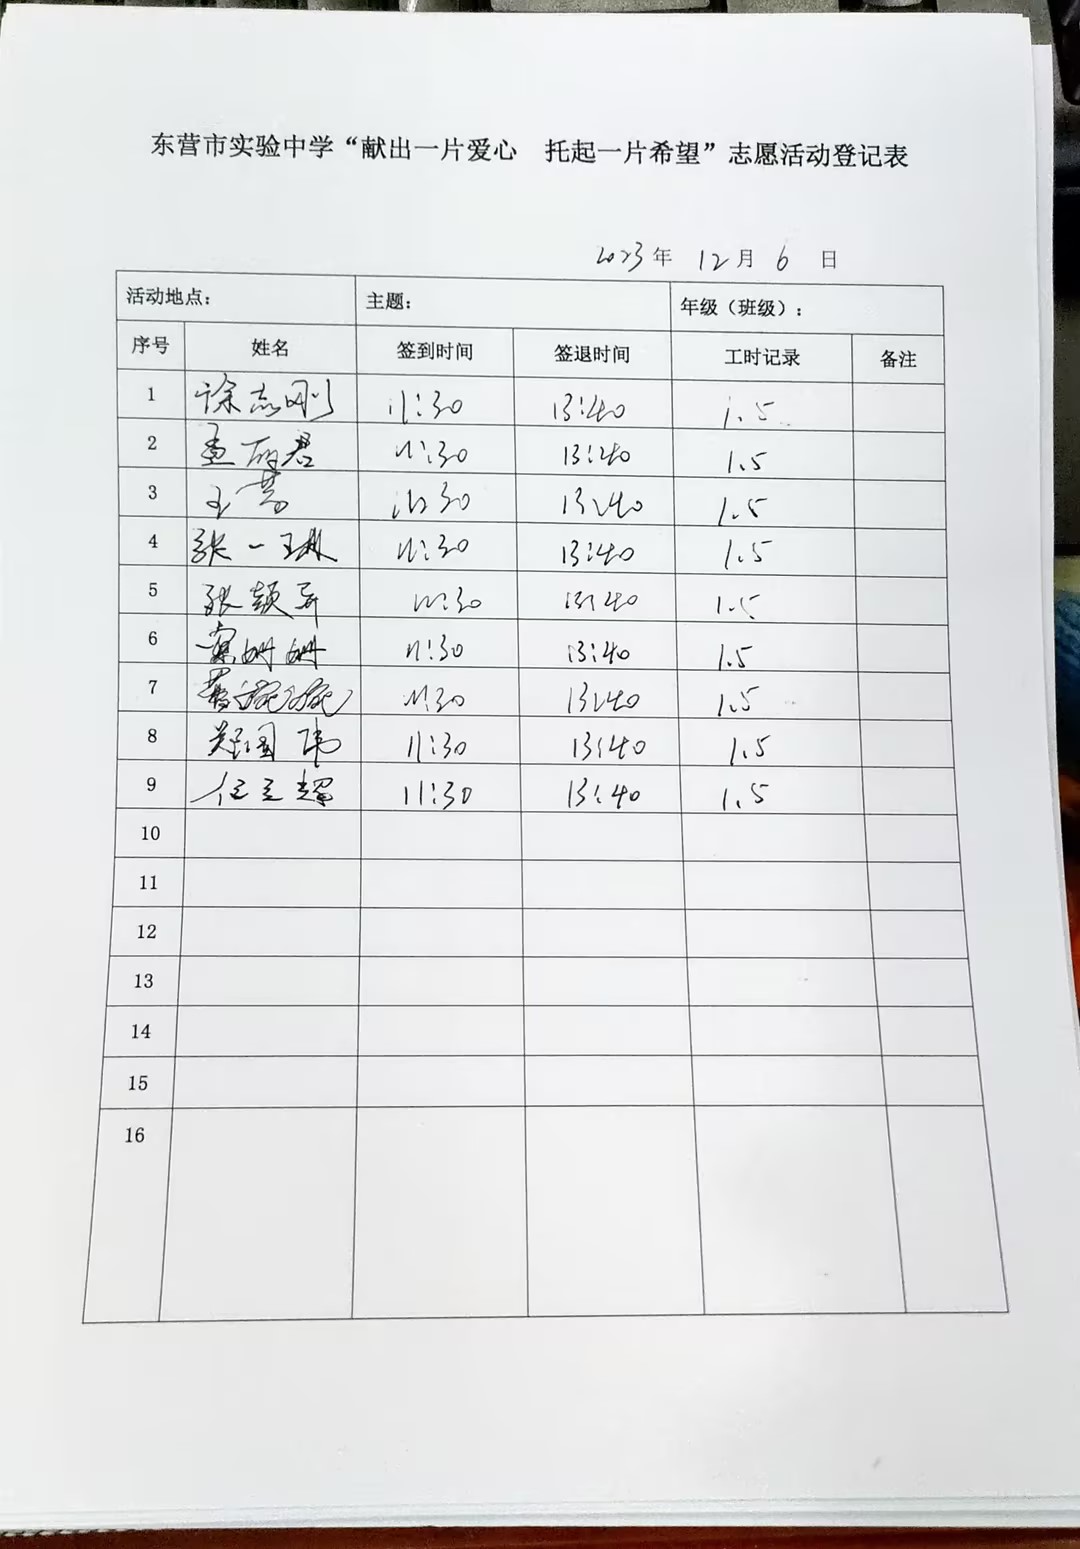 东营市实验中学“献出一片爱心 托起一片希望”志愿活动登记表
2023年 12月 6 日
活动地点： 主题： 年级（班级）：
序号 姓名 签到时间 签退时间 工时记录 备注
1 徐志刚 11:30 13:40 1.5
2 孟丽君 11:30 13:40 1.5
3 王 11:30 13:40 1.5
4 张一琳 11:30 13:40 1.5
5 张颖 11:30 13:40 1.5
6 姗姗 11:30 13:40 1.5
7 11:30 13:40 1.5
8 郑国伟 11:30 13:40 1.5
9 任立辉 11:30 13:40 1.5
10
11
12
13
14
15
16